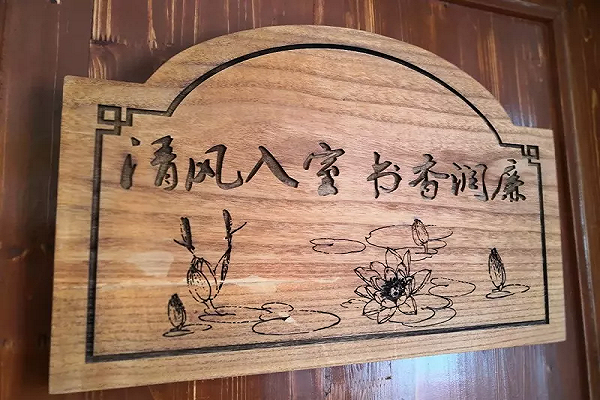 清风入室 书香润廉